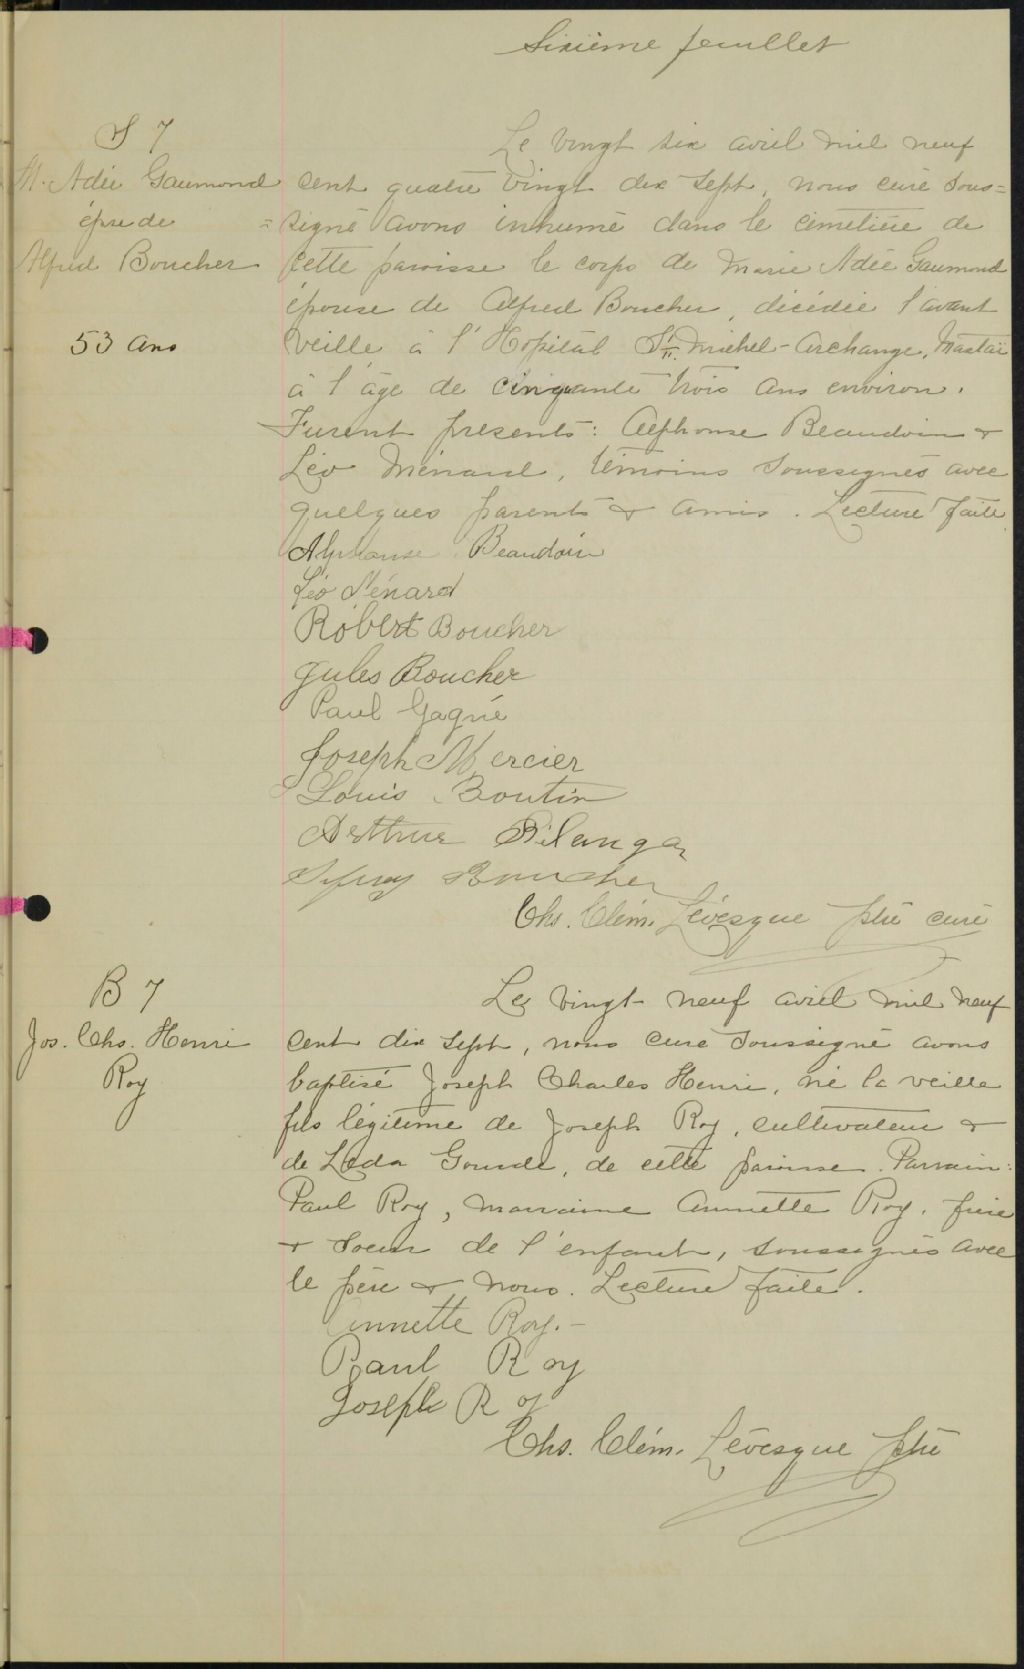 Sixième feuillet
S 7
M. Adée Gaumond
épse de
Alfred Boucher
53 ans
Le vingt six avril mil neuf
cent quatre vingt dix sept, nous curé sous=
=signé avons inhumé dans le cimetière de
cette paroisse le corps de Marie Adée Gaumond
épouse de Alfred Boucher, décédée l'avant
veille à l'Hopital St. Michel-Archange, Mastaï
à l'âge de cinquante trois ans environ.
Furent présents: Alphonse Beaudoin &
Léo Ménard, témoins soussignés avec
quelques parents & amis. Lecture faite.
Alphonse Beaudoin
Léo Ménard
Robert Boucher
Jules Boucher
Paul Gagné
Joseph Mercier
Louis Boutin
Arthur Bilanger
Boucher
Chs. Clém. Lévesque ptre curé
B 7
Jos. Chs. Henri
Roy
Le vingt neuf avril mil neuf
cent dix sept, nous curé soussigné avons
baptisé Joseph Charles Henri, né la veille
fils légitime de Joseph Roy, cultivateur &
de Léda Gourde, de cette paroisse. Parrain:
Paul Roy, marraine Annette Roy, frère
& soeur de l'enfant, soussignés avec
le père & nous. Lecture faite.
Annette Roy.-
Paul Roy
Joseph Roy
Chs. Clém. Lévesque ptre